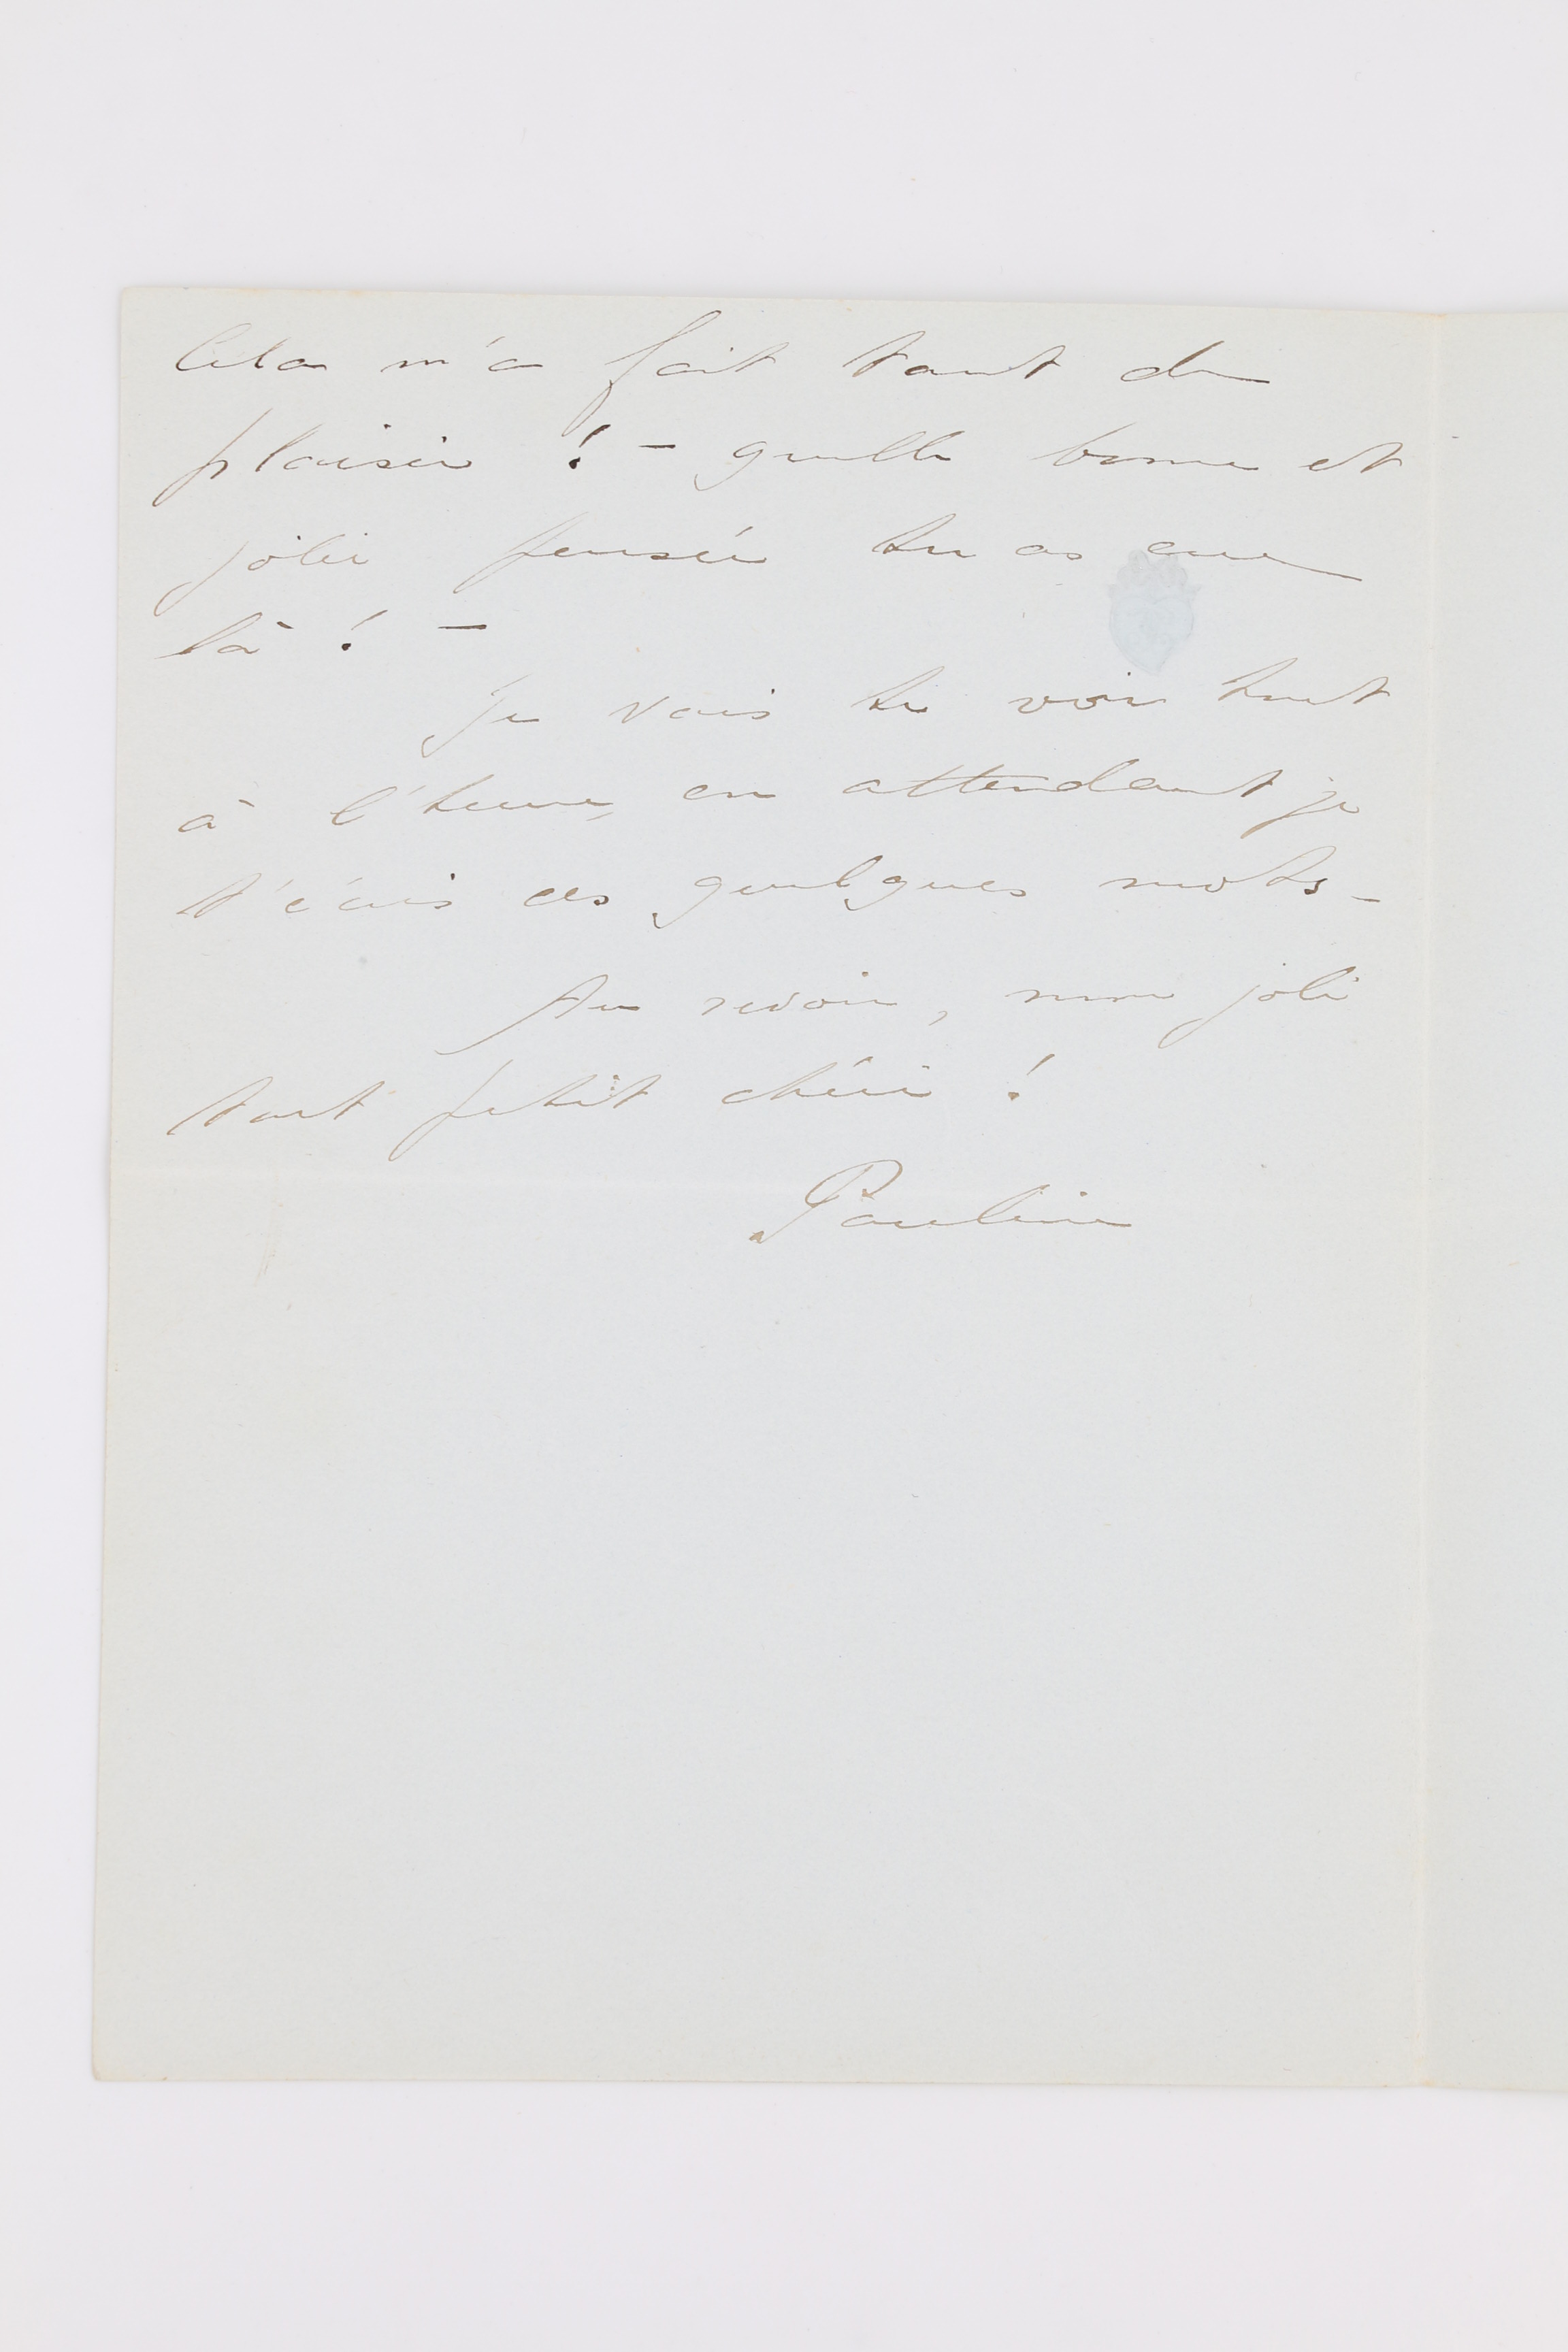 Cela m'a fait tant de
plaisir ! – quelle bonne et
jolie pensée tu as eue
là ! –
Je vais te voir tout
à l'heure, en attendant je
t'écris ces quelques mots –
Au revoir, mon joli
tout petit chéri !
Pauline